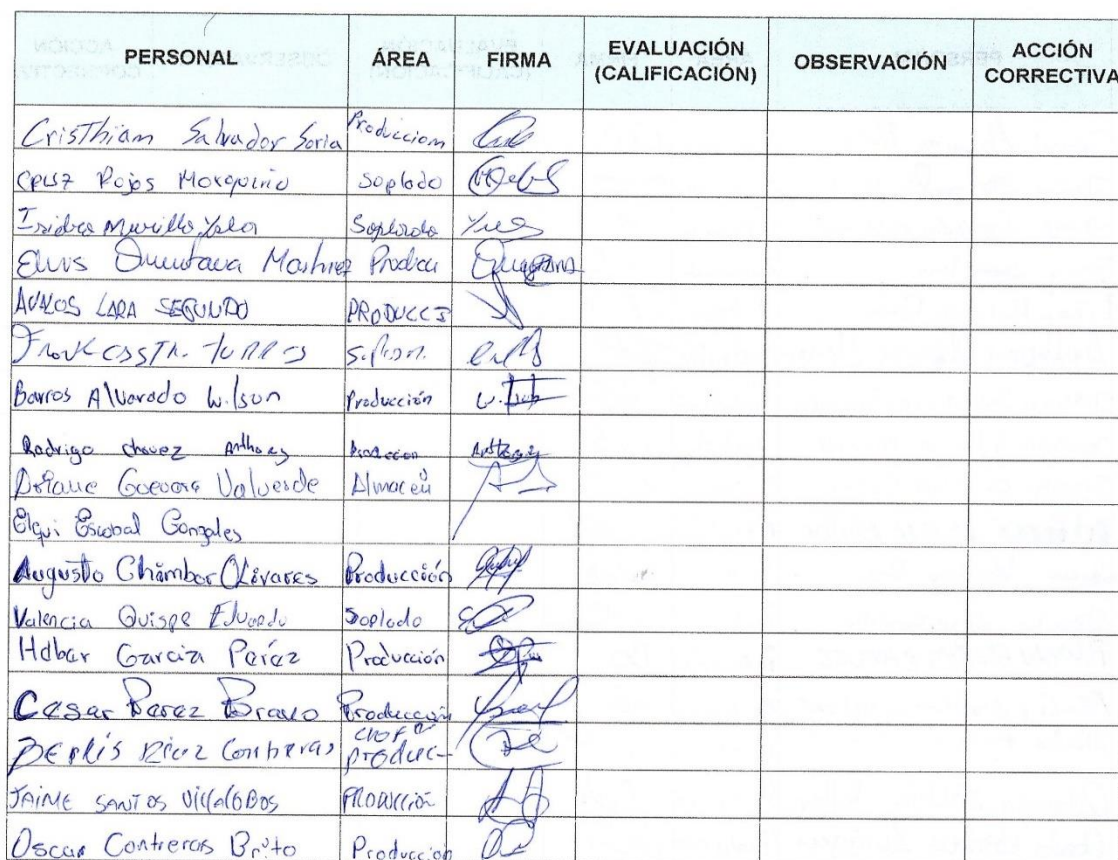 PERSONAL ÁREA FIRMA EVALUACIÓN (CALIFICACIÓN) OBSERVACIÓN ACCIÓN CORRECTIVA
Cristhiam Salvador Soria Produccion
Rojas Soplado
Murillo Soplado
Elvis Quintana Martinez
AVALOS LARA SEGUNDO PRODUCCI
TURRES
Barros Alvarado Wilson Producción
Rodrigo Chavez Anthony Produccion
Guevara Valverde Almacen
Elqui Escobal Gonzales
Augusto Chambor Olivares Producción
Valencia Quispe Eduardo Soplado
Garcia Peréz Producción
Cesar Perez Bravo Producción
Diaz Contreras Produc-
JAIME SANTOS VillaloBos PRODUCCIÓN
Oscar Contreras Brito Producción